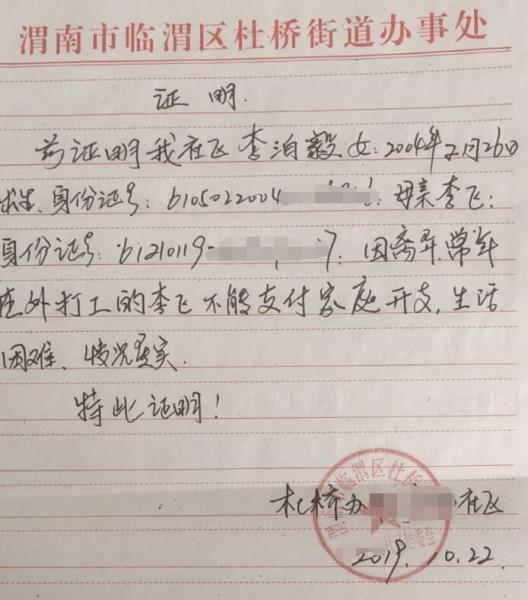 渭南市临渭区杜桥街道办事处
证明.
兹证明我社区李泊毅女:2004年2月26日
出生.身份证号:6105022004 母亲李飞:
身份证号:61210119- 7. 因离异.常年
在外打工的李飞不能支付家庭开支.生活
困难、情况属实.
特此证明!
杜桥办 社区
2019.10.22.
渭南市临渭区杜桥